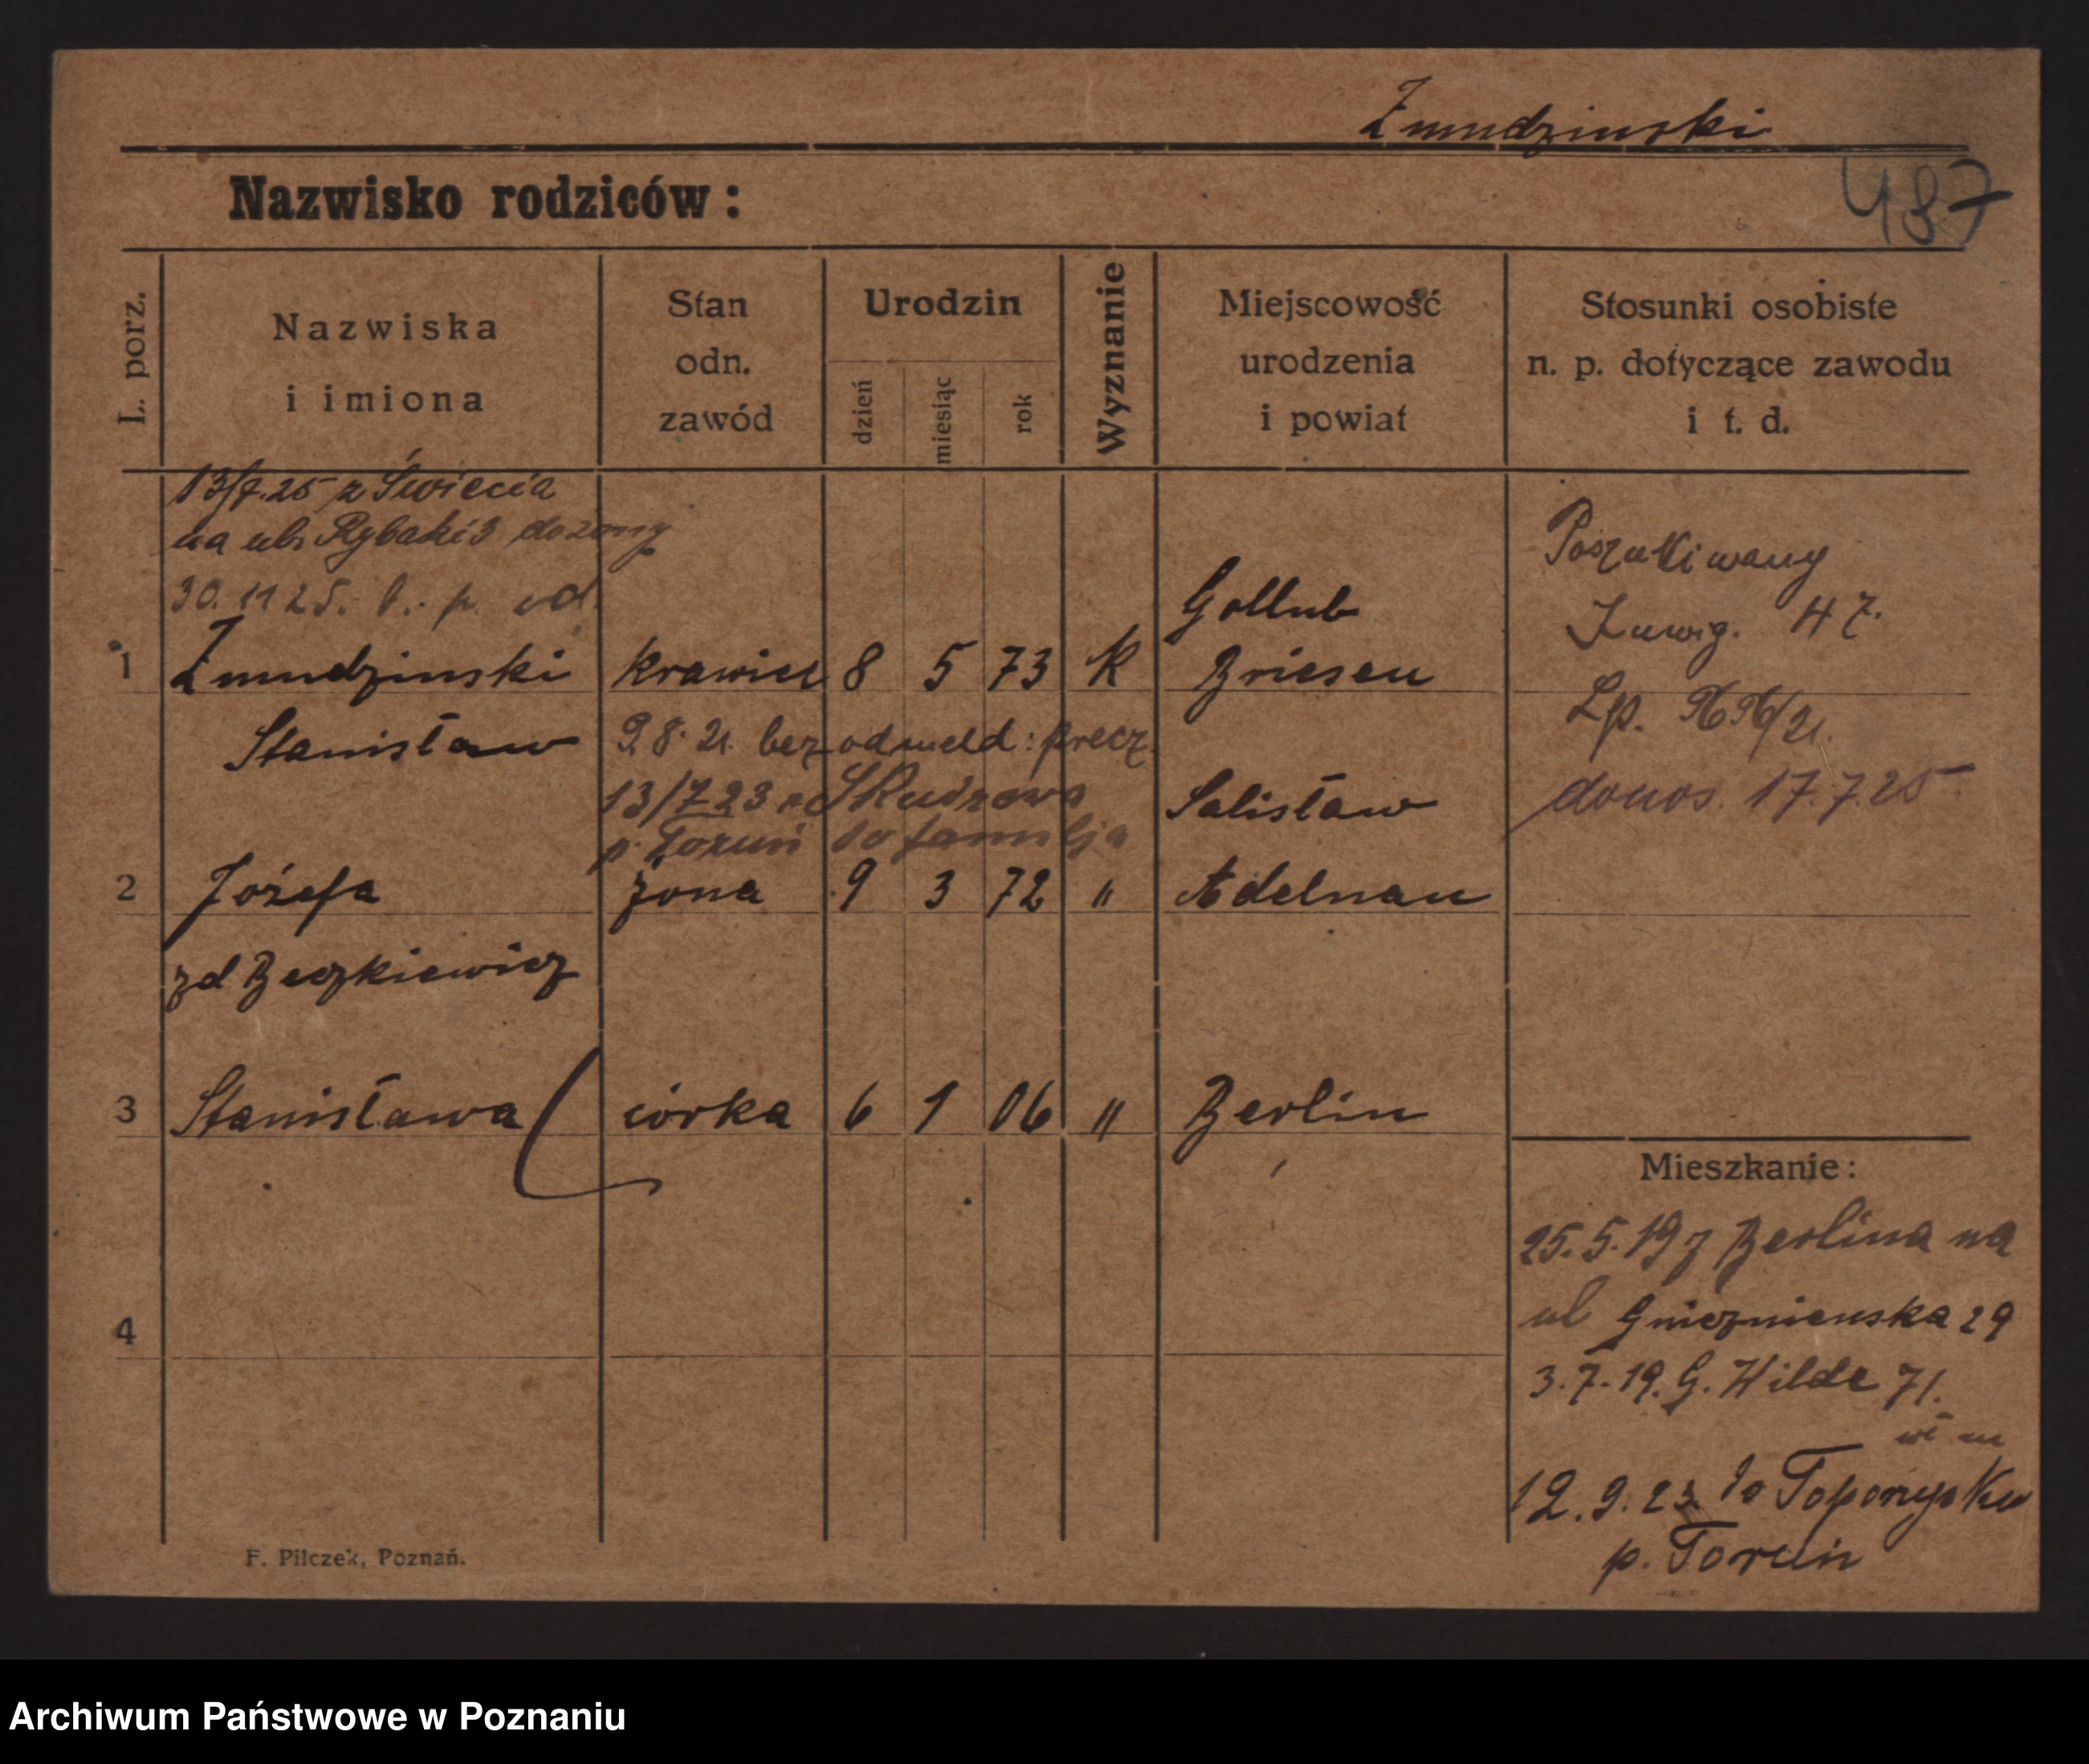 Zmudzinski
Nazwisko rodziców:
487
L. porz.
Nazwiska
i imiona
Stan
odn.
zawód
Urodzin
dzień
miesiąc
rok
Wyznanie
Miejscowość
urodzenia
i powiat
Stosunki osobiste
n. p. dotyczące zawodu
i t. d.
13/7.25 z Świecia
na ul. Rybaki 3 do żony
30. 11 25. b. p. od.
1 Zmudzinski krawiec 8 5 73 K
Gollub
Briesen
Stanisław
9.8.21. bez odmeld: precz.
13/7 23 z
p. Toruń do familja
Salisław
2 Józefa żona 9 3 72 " Adelnau
zd Beczkiewicz
3 Stanisława córka 6 1 06 " Berlin
4
Poszukiwany
47.
Lp.
donos. 17.7.25
Mieszkanie:
25.5.19 z Berlina na
ul Gnieznienska 29
3.7.19. G. Wilde 71.
12.9.23. do
p. Toruń
F. Pilczek, Poznań.
Archiwum Państwowe w Poznaniu